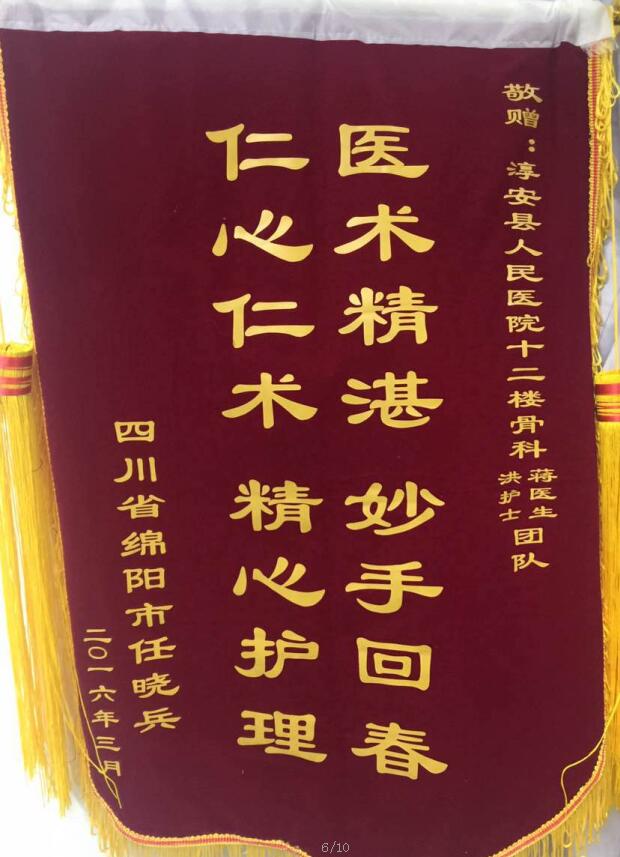 敬赠：淳安县人民医院十二楼骨科蒋医生洪护士团队
医术精湛 妙手回春
仁心仁术 精心护理
四川省绵阳市任晓兵
二〇一六年三月
6/10